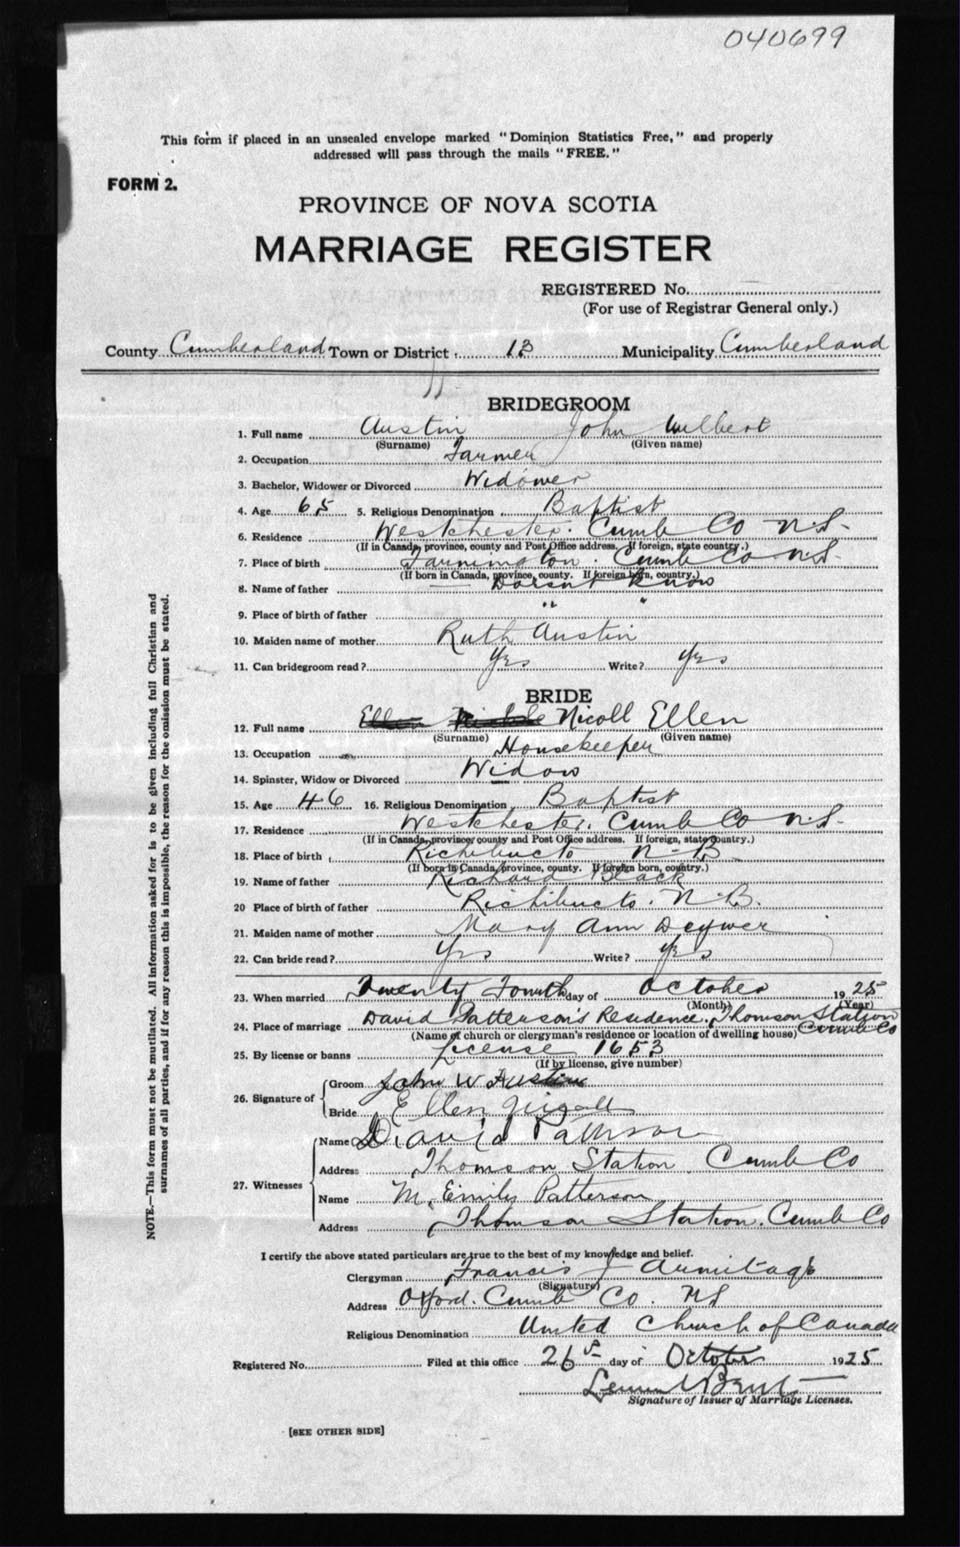 040699
This form if placed in an unsealed envelope marked "Dominion Statistics Free," and properly
addressed will pass through the mails "FREE."
FORM 2.
PROVINCE OF NOVA SCOTIA
MARRIAGE REGISTER
REGISTERED No.
(For use of Registrar General only.)
County Cumberland Town or District 13 Municipality Cumberland
11
BRIDEGROOM
1. Full name Austin John Wilbert
(Surname) (Given name)
2. Occupation Farmer
3. Bachelor, Widower or Divorced Widower
4. Age 65 5. Religious Denomination Baptist
6. Residence Westchester. Cumb Co N.S.
(If in Canada, province, county and Post Office address. If foreign, state country.)
7. Place of birth Farmington. Cumb Co N.S.
(If born in Canada, province, county. If foreign born, country.)
8. Name of father Doesn't Know
9. Place of birth of father " "
10. Maiden name of mother Ruth Austin
11. Can bridegroom read? Yes Write? Yes
BRIDE
12. Full name Ellen Nicoll Ellen
(Surname) (Given name)
13. Occupation Housekeeper
14. Spinster, Widow or Divorced Widow
15. Age 46 16. Religious Denomination Baptist
17. Residence Westchester. Cumb Co N.S.
(If in Canada, province, county and Post Office address. If foreign, state country.)
18. Place of birth Richibucto N-B
(If born in Canada, province, county. If foreign born, country.)
19. Name of father Richard Black
20 Place of birth of father Richibucto. N.B.
21. Maiden name of mother Mary Ann
22. Can bride read? Yes Write? Yes
23. When married Twenty Fourth day of October 1925
(Month) (Year)
24. Place of marriage David Patterson's Residence, Thomson Station
Cumb Co
(Name of church or clergyman's residence or location of dwelling house)
25. By license or banns License 1653
(If by license, give number)
26. Signature of
Groom John W Austin
Bride Ellen
27. Witnesses
Name David Patterson
Address Thomson Station. Cumb Co
Name M. Emily Patterson
Address Thomson Station. Cumb Co
I certify the above stated particulars are true to the best of my knowledge and belief.
Clergyman Francis J Armitage
(Signature)
Address Oxford. Cumb Co. NS
Religious Denomination United Church of Canada
Registered No. Filed at this office 26 day of October 1925
Signature of Issuer of Marriage Licenses.
[SEE OTHER SIDE]
NOTE.—This form must not be mutilated. All information asked for is to be given including full Christian and
surnames of all parties, and if for any reason this is impossible, the reason for the omission must be stated.